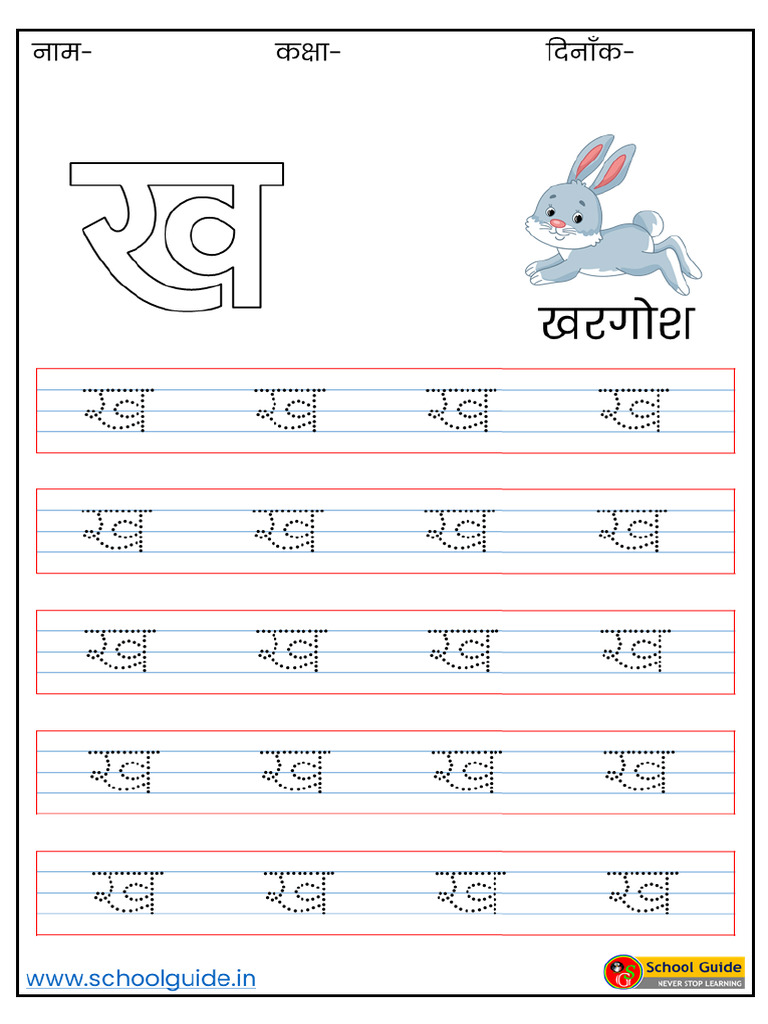 नाम- कक्षा- दिनाँक-
ख
खरगोश
ख ख ख ख
ख ख ख ख
ख ख ख ख
ख ख ख ख
ख ख ख ख
www.schoolguide.in
SG School Guide
NEVER STOP LEARNING